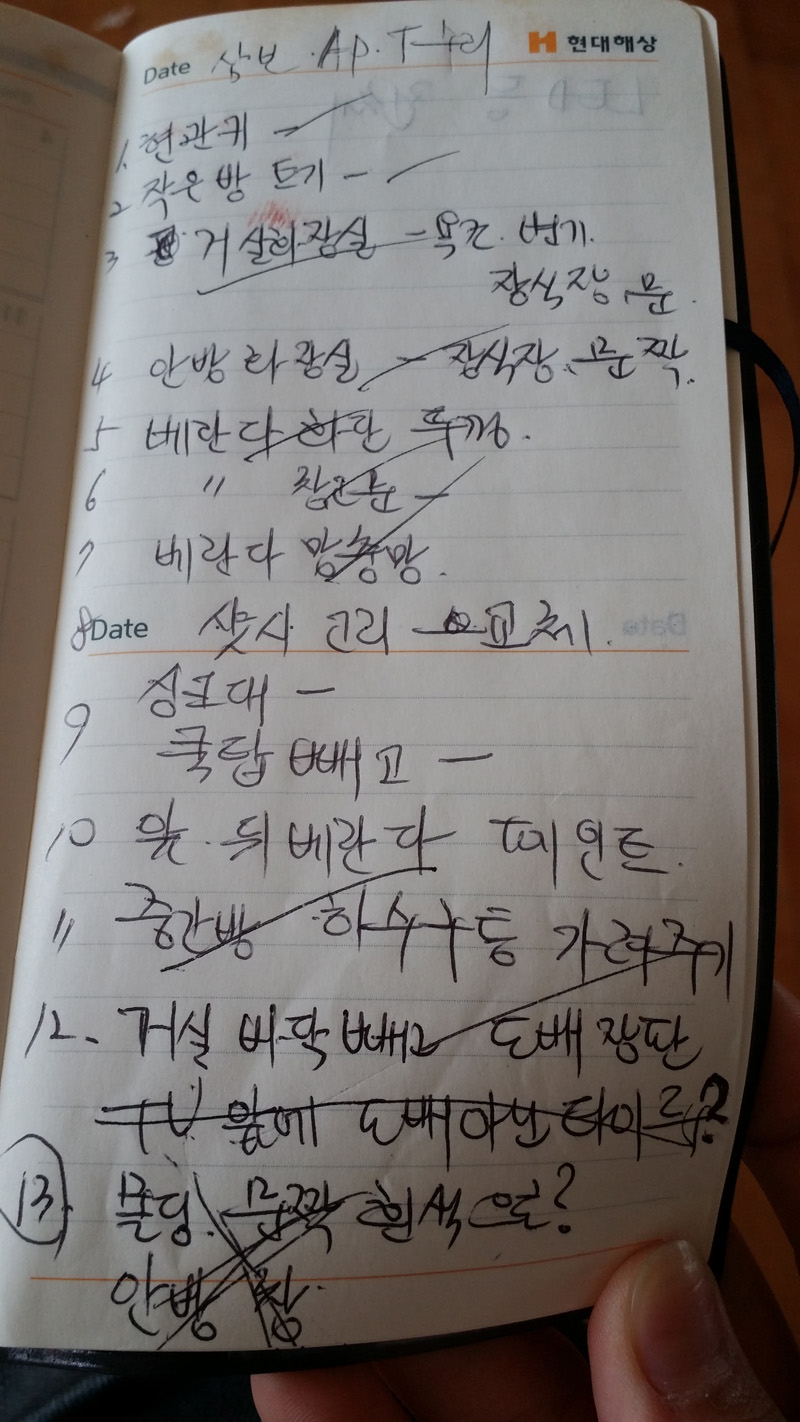 Date 상보 · AP · T 수리 현대해상
1. 현관귀 -
2 작은 방 트기 -
3 거실화장실 - 욕조. 변기.
장식장, 문.
4 안방 화장실 - 장식장, 문짝.
5 베란다 하단 뚜껑.
6 〃
7 베란다 방충망.
8 Date 샷시 고리 교체.
9 싱크대 -
쿡탑 빼고 -
10 앞·뒤 베란다 페인트.
11 중간방 하수구통 가려주기
12. 거실 바닥 빼고 도배 장판
TV 앞에 도배 아닌 타이루?
13 몰딩. 문짝 흰색으로?
안방 창.